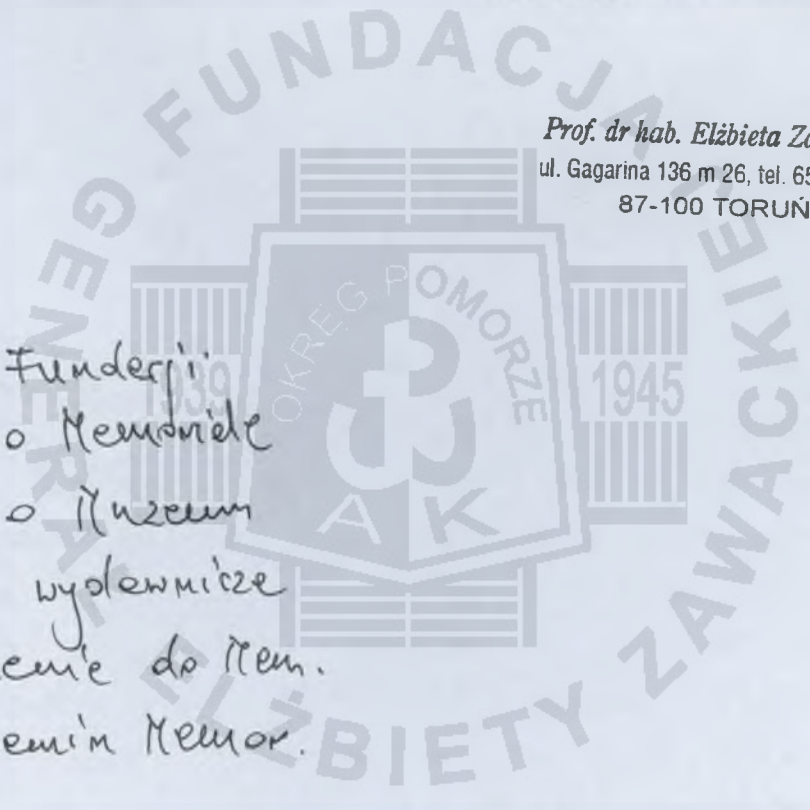 FUNDACJA GENERAŁ ELŻBIETY ZAWACKIEJ
Prof. dr hab. Elżbieta Za
ul. Gagarina 136 m 26, tel. 65
87-100 TORUŃ
OKRĘG POMORZE
1939
1945
AK
Fundacji
o Memoriale
o Muzeum
wydawnicze
enie do Mem.
emin Memor.